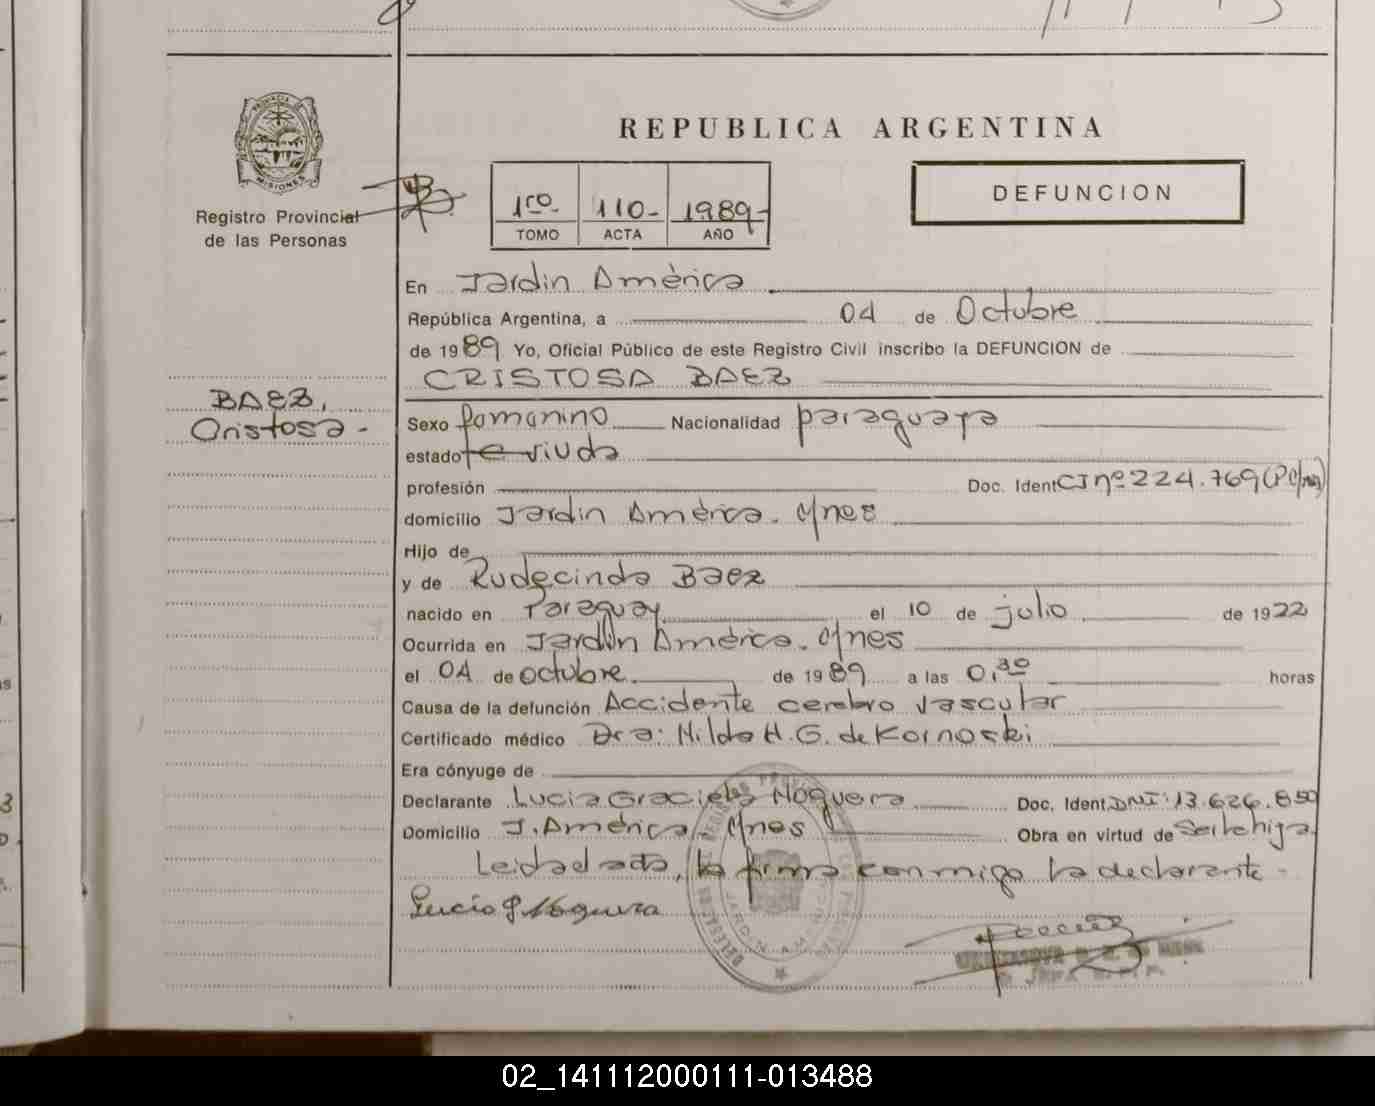 REPUBLICA ARGENTINA
PROVINCIA DE
MISIONES
Registro Provincial
de las Personas
1ro 110- 1989-
TOMO ACTA AÑO
DEFUNCION
En Jardin América
República Argentina, a 04 de Octubre
de 1989 Yo, Oficial Público de este Registro Civil inscribo la DEFUNCION de
CRISTOSA BAEZ
BAEZ,
Cristosa-
Sexo femenino Nacionalidad paraguaya
estado viuda
profesión Doc. Ident CI nº 224.769
domicilio Jardin América. Mnes
Hijo de
y de Rudecinda Baez
nacido en Paraguay el 10 de julio de 1922
Ocurrida en Jardin América. Mnes
el 04 de octubre de 1989 a las 0,30 horas
Causa de la defunción Accidente cerebro vascular
Certificado médico Dra: Hilda H. G. de Kornoski
Era cónyuge de
Declarante Lucia Graciela Noguera Doc. Ident. DNI: 13.626.850
Domicilio J. América. Mnes Obra en virtud de ser la hija
Leida el acta, la firma conmigo la declarante-
Lucia G Noguera
JARDIN AMERICA
02_141112000111-013488